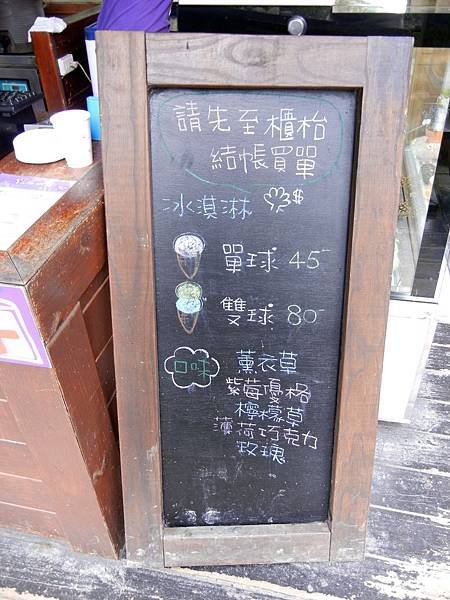 請先至櫃枱
結帳買單
冰淇淋 $
單球 45
雙球 80
口味
薰衣草
紫莓優格
檸檬草
薄荷巧克力
玫瑰